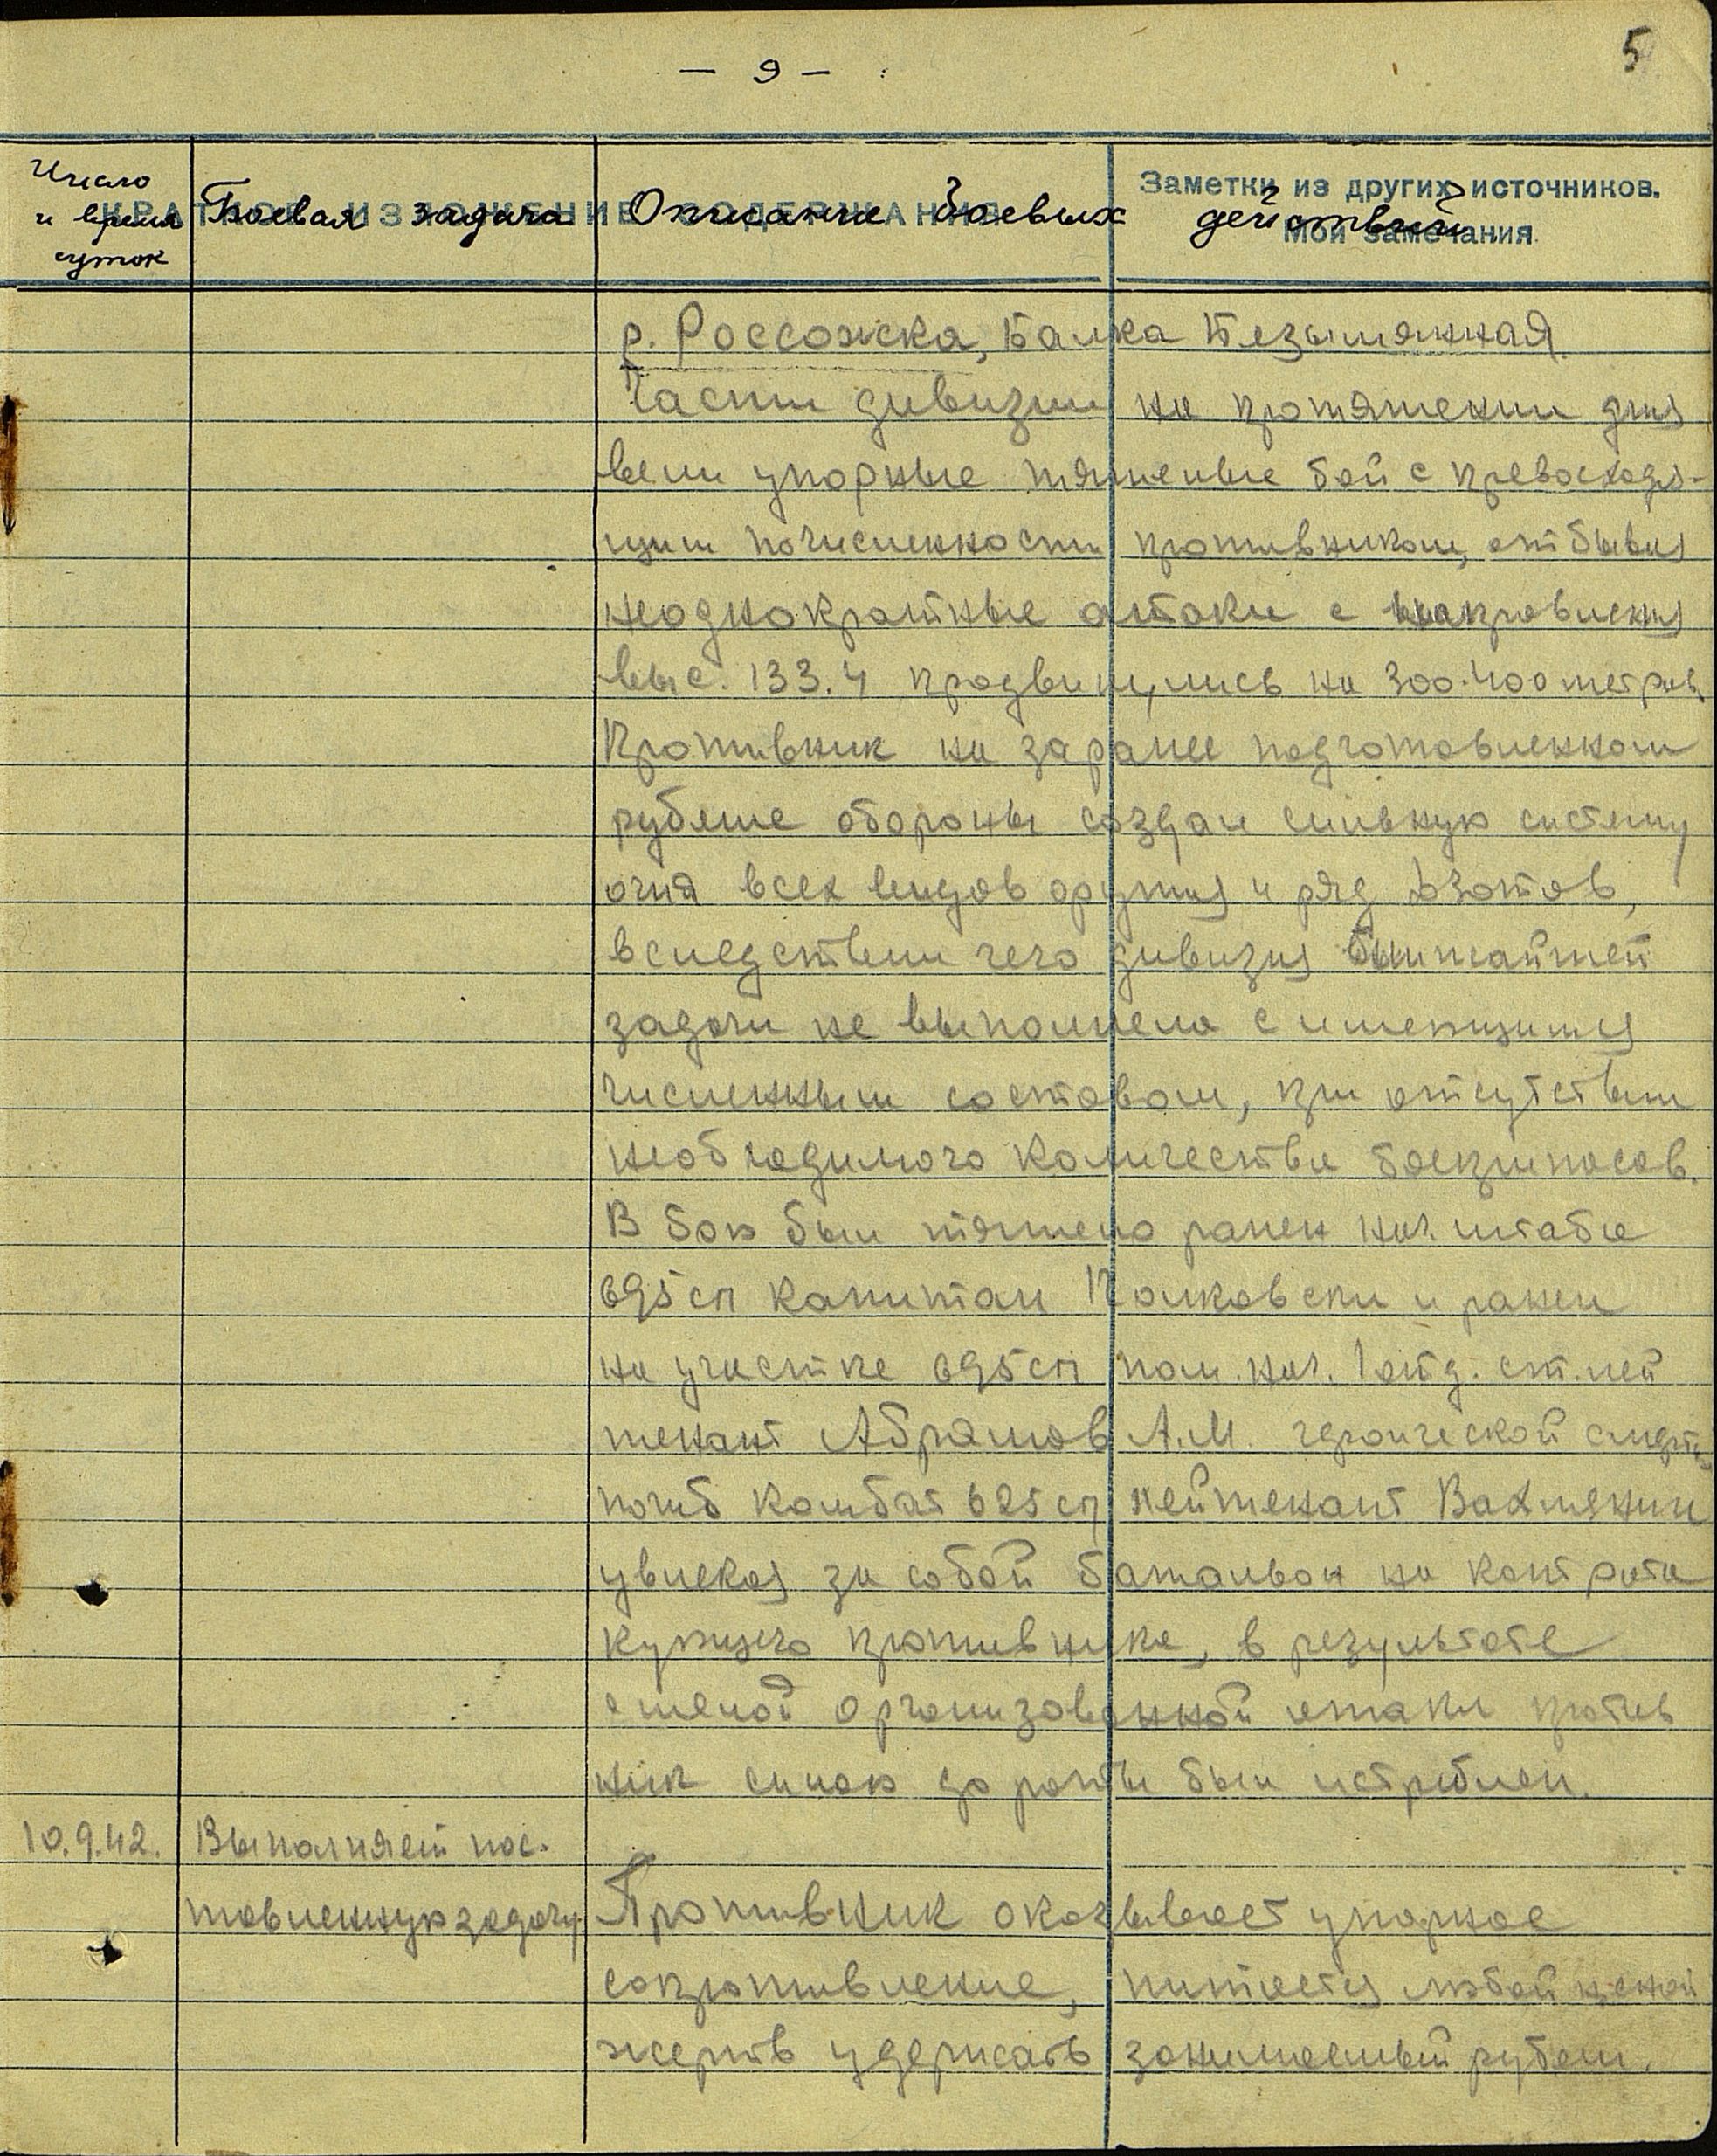 — 9 —
5
Число и время суток
Боевая задача
Описание боевых действий
КРАТКОЕ ИЗЛОЖЕНИЕ СОДЕРЖАНИЯ
Заметки из других источников.
Мои замечания
р. Россожка, Балка Безымянная.
Части дивизии на протяжении дня
вели упорные тяжелые бои с превосходя-
щим по численности противником, отбивая
неоднократные атаки с направления
выс. 133.4 продвинулись на 300-400 метров.
Противник на заранее подготовленном
рубеже обороны создал сильную систему
огня всех видов оружия и ряд дзотов,
вследствии чего дивизия ближайшей
задачи не выполнела с имеющимся
численным составом, при отсутствии
необходимого количества боеприпасов.
В бою был тяжело ранен нач. штаба
695 сп капитан и ранен
на участке 695 сп пом. нач. 1 отд. ст. лей
тенант Абрамов А.М. героической смертью
погиб комбат 625 сп лейтенант
увлекая за собой батальон на контрата
кующего противника, в результате
смелой организованной атаки против
ник силою до роты был истреблен.
10.9.42.
Выполняет пос-
тавленную задачу.
Противник оказывает упорное
сопротивление, питается любой ценой
жертв удержать занимаемый рубеж.